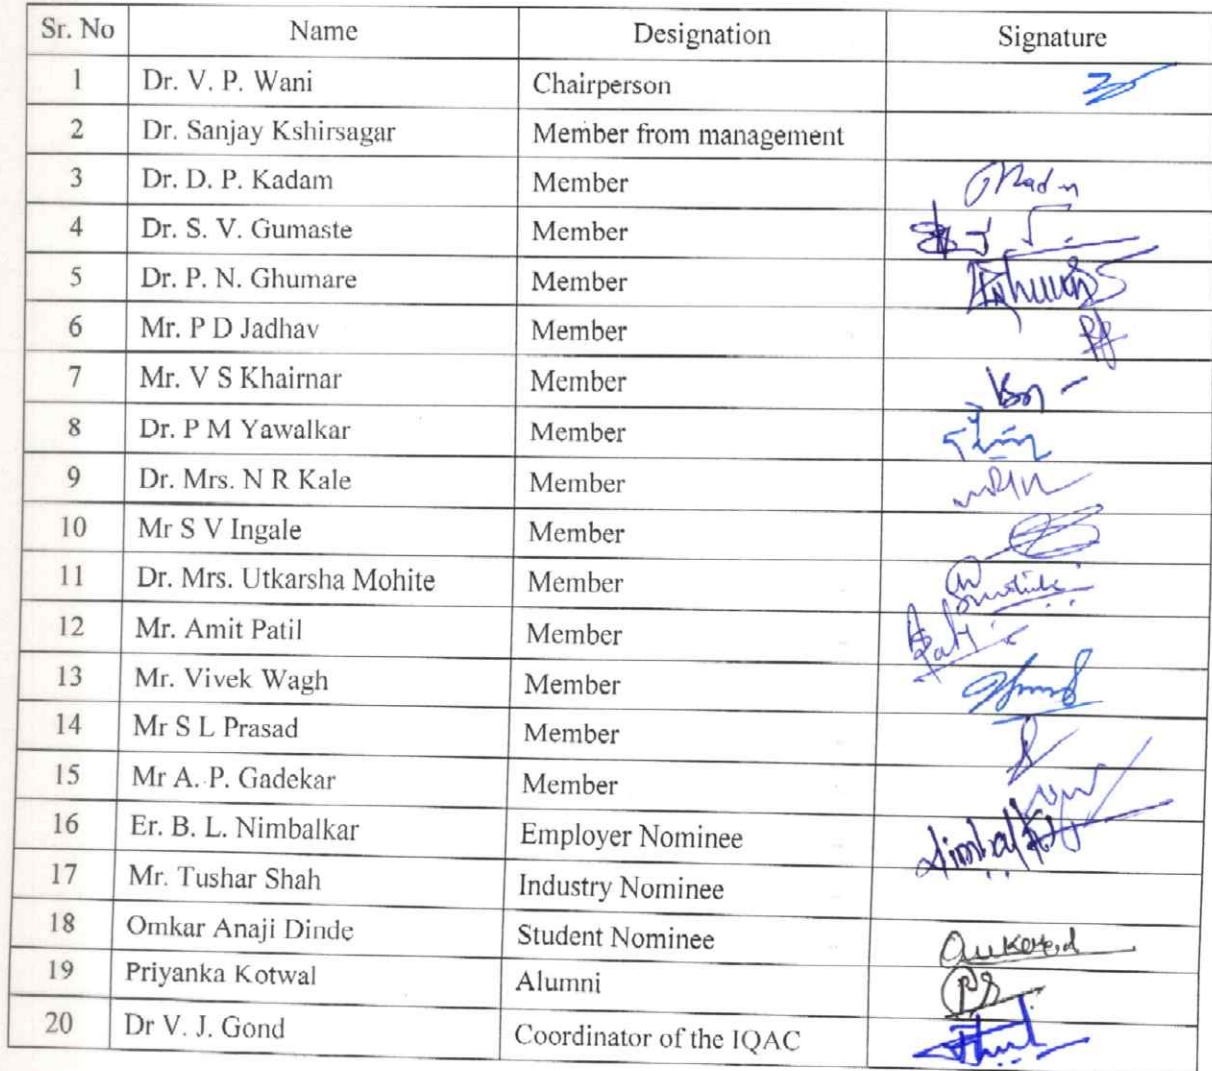 Sr. No Name Designation Signature
1 Dr. V. P. Wani Chairperson
2 Dr. Sanjay Kshirsagar Member from management
3 Dr. D. P. Kadam Member
4 Dr. S. V. Gumaste Member
5 Dr. P. N. Ghumare Member
6 Mr. P D Jadhav Member
7 Mr. V S Khairnar Member
8 Dr. P M Yawalkar Member
9 Dr. Mrs. N R Kale Member
10 Mr S V Ingale Member
11 Dr. Mrs. Utkarsha Mohite Member
12 Mr. Amit Patil Member
13 Mr. Vivek Wagh Member
14 Mr S L Prasad Member
15 Mr A. P. Gadekar Member
16 Er. B. L. Nimbalkar Employer Nominee
17 Mr. Tushar Shah Industry Nominee
18 Omkar Anaji Dinde Student Nominee
19 Priyanka Kotwal Alumni
20 Dr V. J. Gond Coordinator of the IQAC